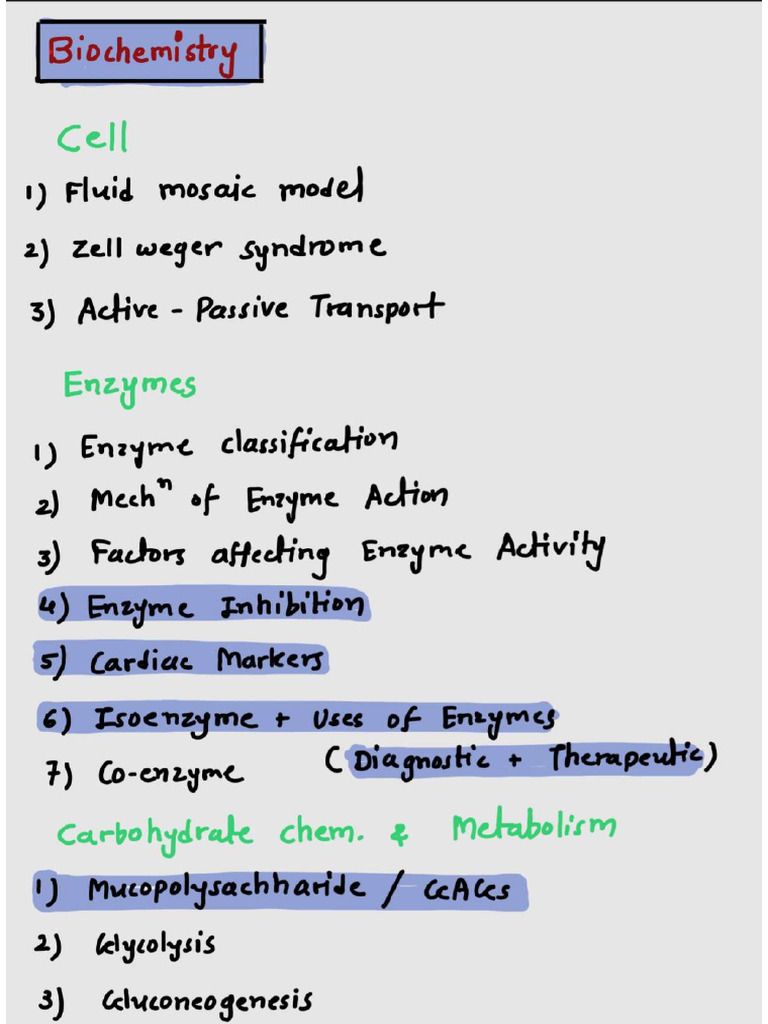 Biochemistry
Cell
1) Fluid mosaic model
2) Zellweger syndrome
3) Active - Passive Transport
Enzymes
1) Enzyme classification
2) Mechⁿ of Enzyme Action
3) Factors affecting Enzyme Activity
4) Enzyme Inhibition
5) Cardiac Markers
6) Isoenzyme + Uses of Enzymes
7) Co-enzyme (Diagnostic + Therapeutic)
Carbohydrate chem. & Metabolism
1) Mucopolysachharide / GAGs
2) Glycolysis
3) Gluconeogenesis